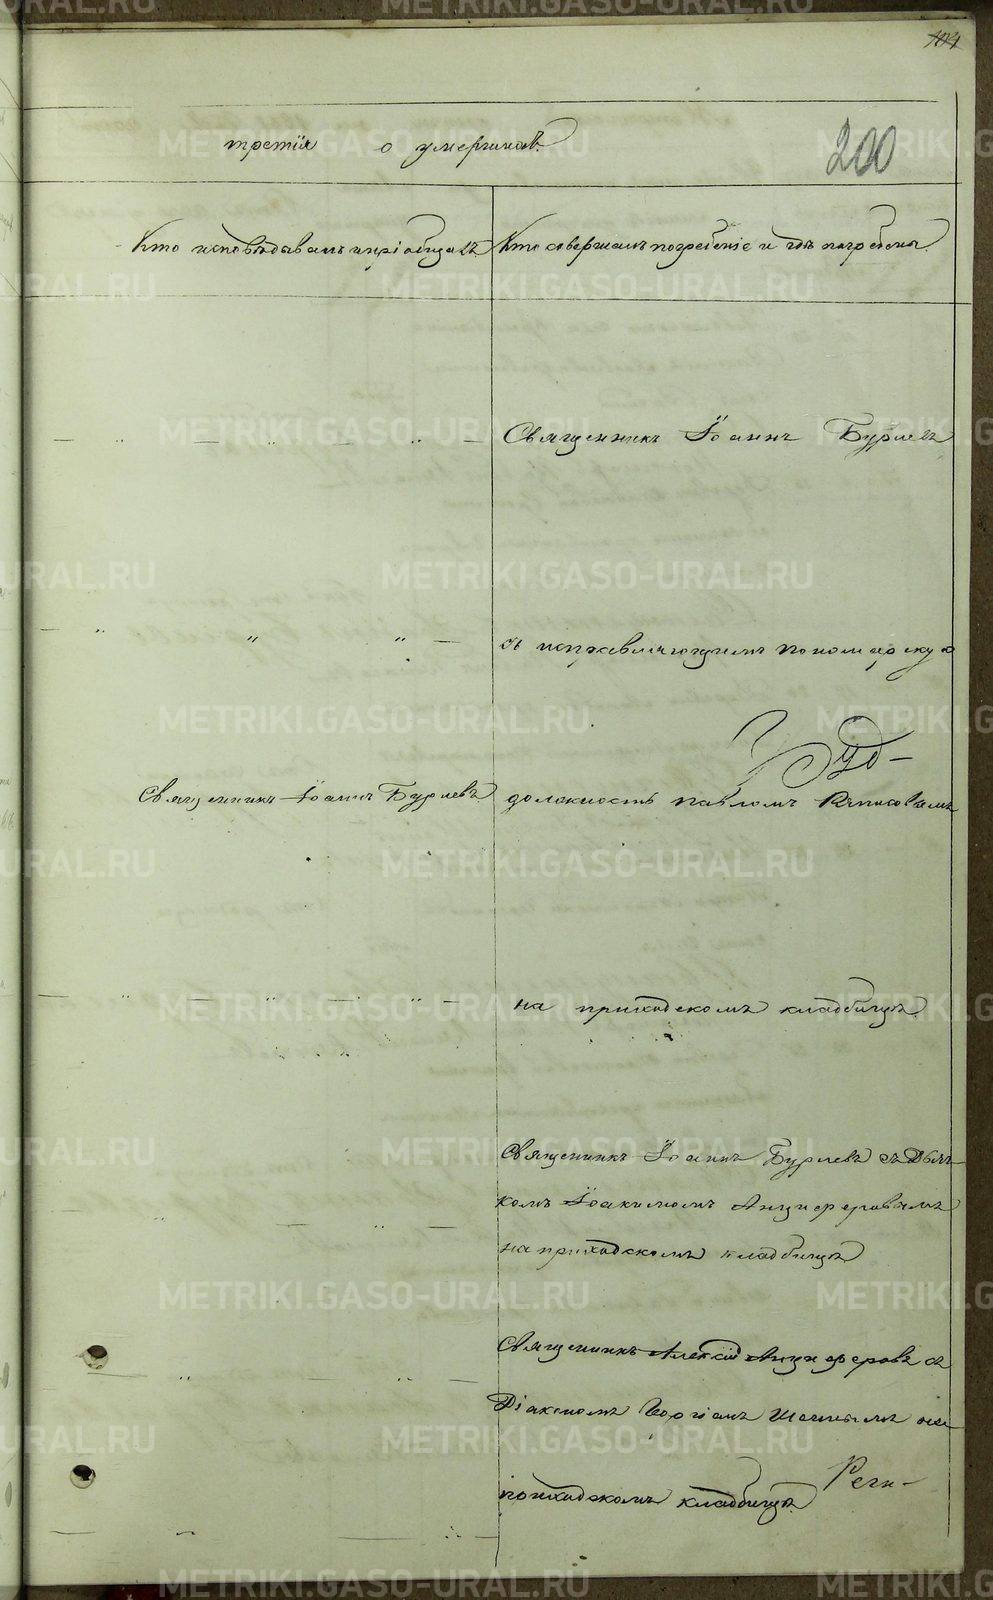 104
200
третія о умершихъ.
Кто исповѣдывалъ и пріобщалъ
Кто совершалъ погребеніе и гдѣ погребены.
Священникъ Іоаннъ Бурлевъ
съ исправляющимъ пономарскую
Священникъ Іоаннъ Бурлевъ
должность Павломъ
на приходскомъ кладбищѣ.
Священникъ Іоаннъ Бурлевъ съ Дьяч-
комъ Іоакимомъ Анциферовымъ
на приходскомъ кладбищѣ
Священникъ Алексій Анциферовъ съ
Діакономъ Георгіемъ на
приходскомъ кладбищѣ.
METRIKI.GASO-URAL.RU